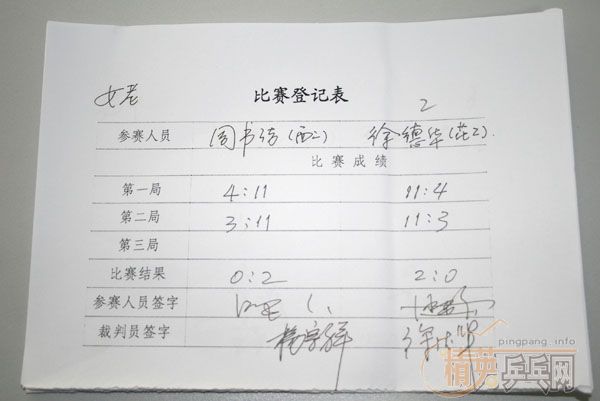 女老 比赛登记表 2
参赛人员 周书 (西二) 徐德华(花2)
比赛成绩
第一局 4:11 11:4
第二局 3:11 11:3
第三局
比赛结果 0:2 2:0
参赛人员签字
裁判员签字
pingpang.info
精英乒乓网